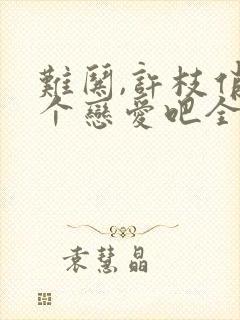 難關,許枝俏
个戀愛吧全
袁慧晶